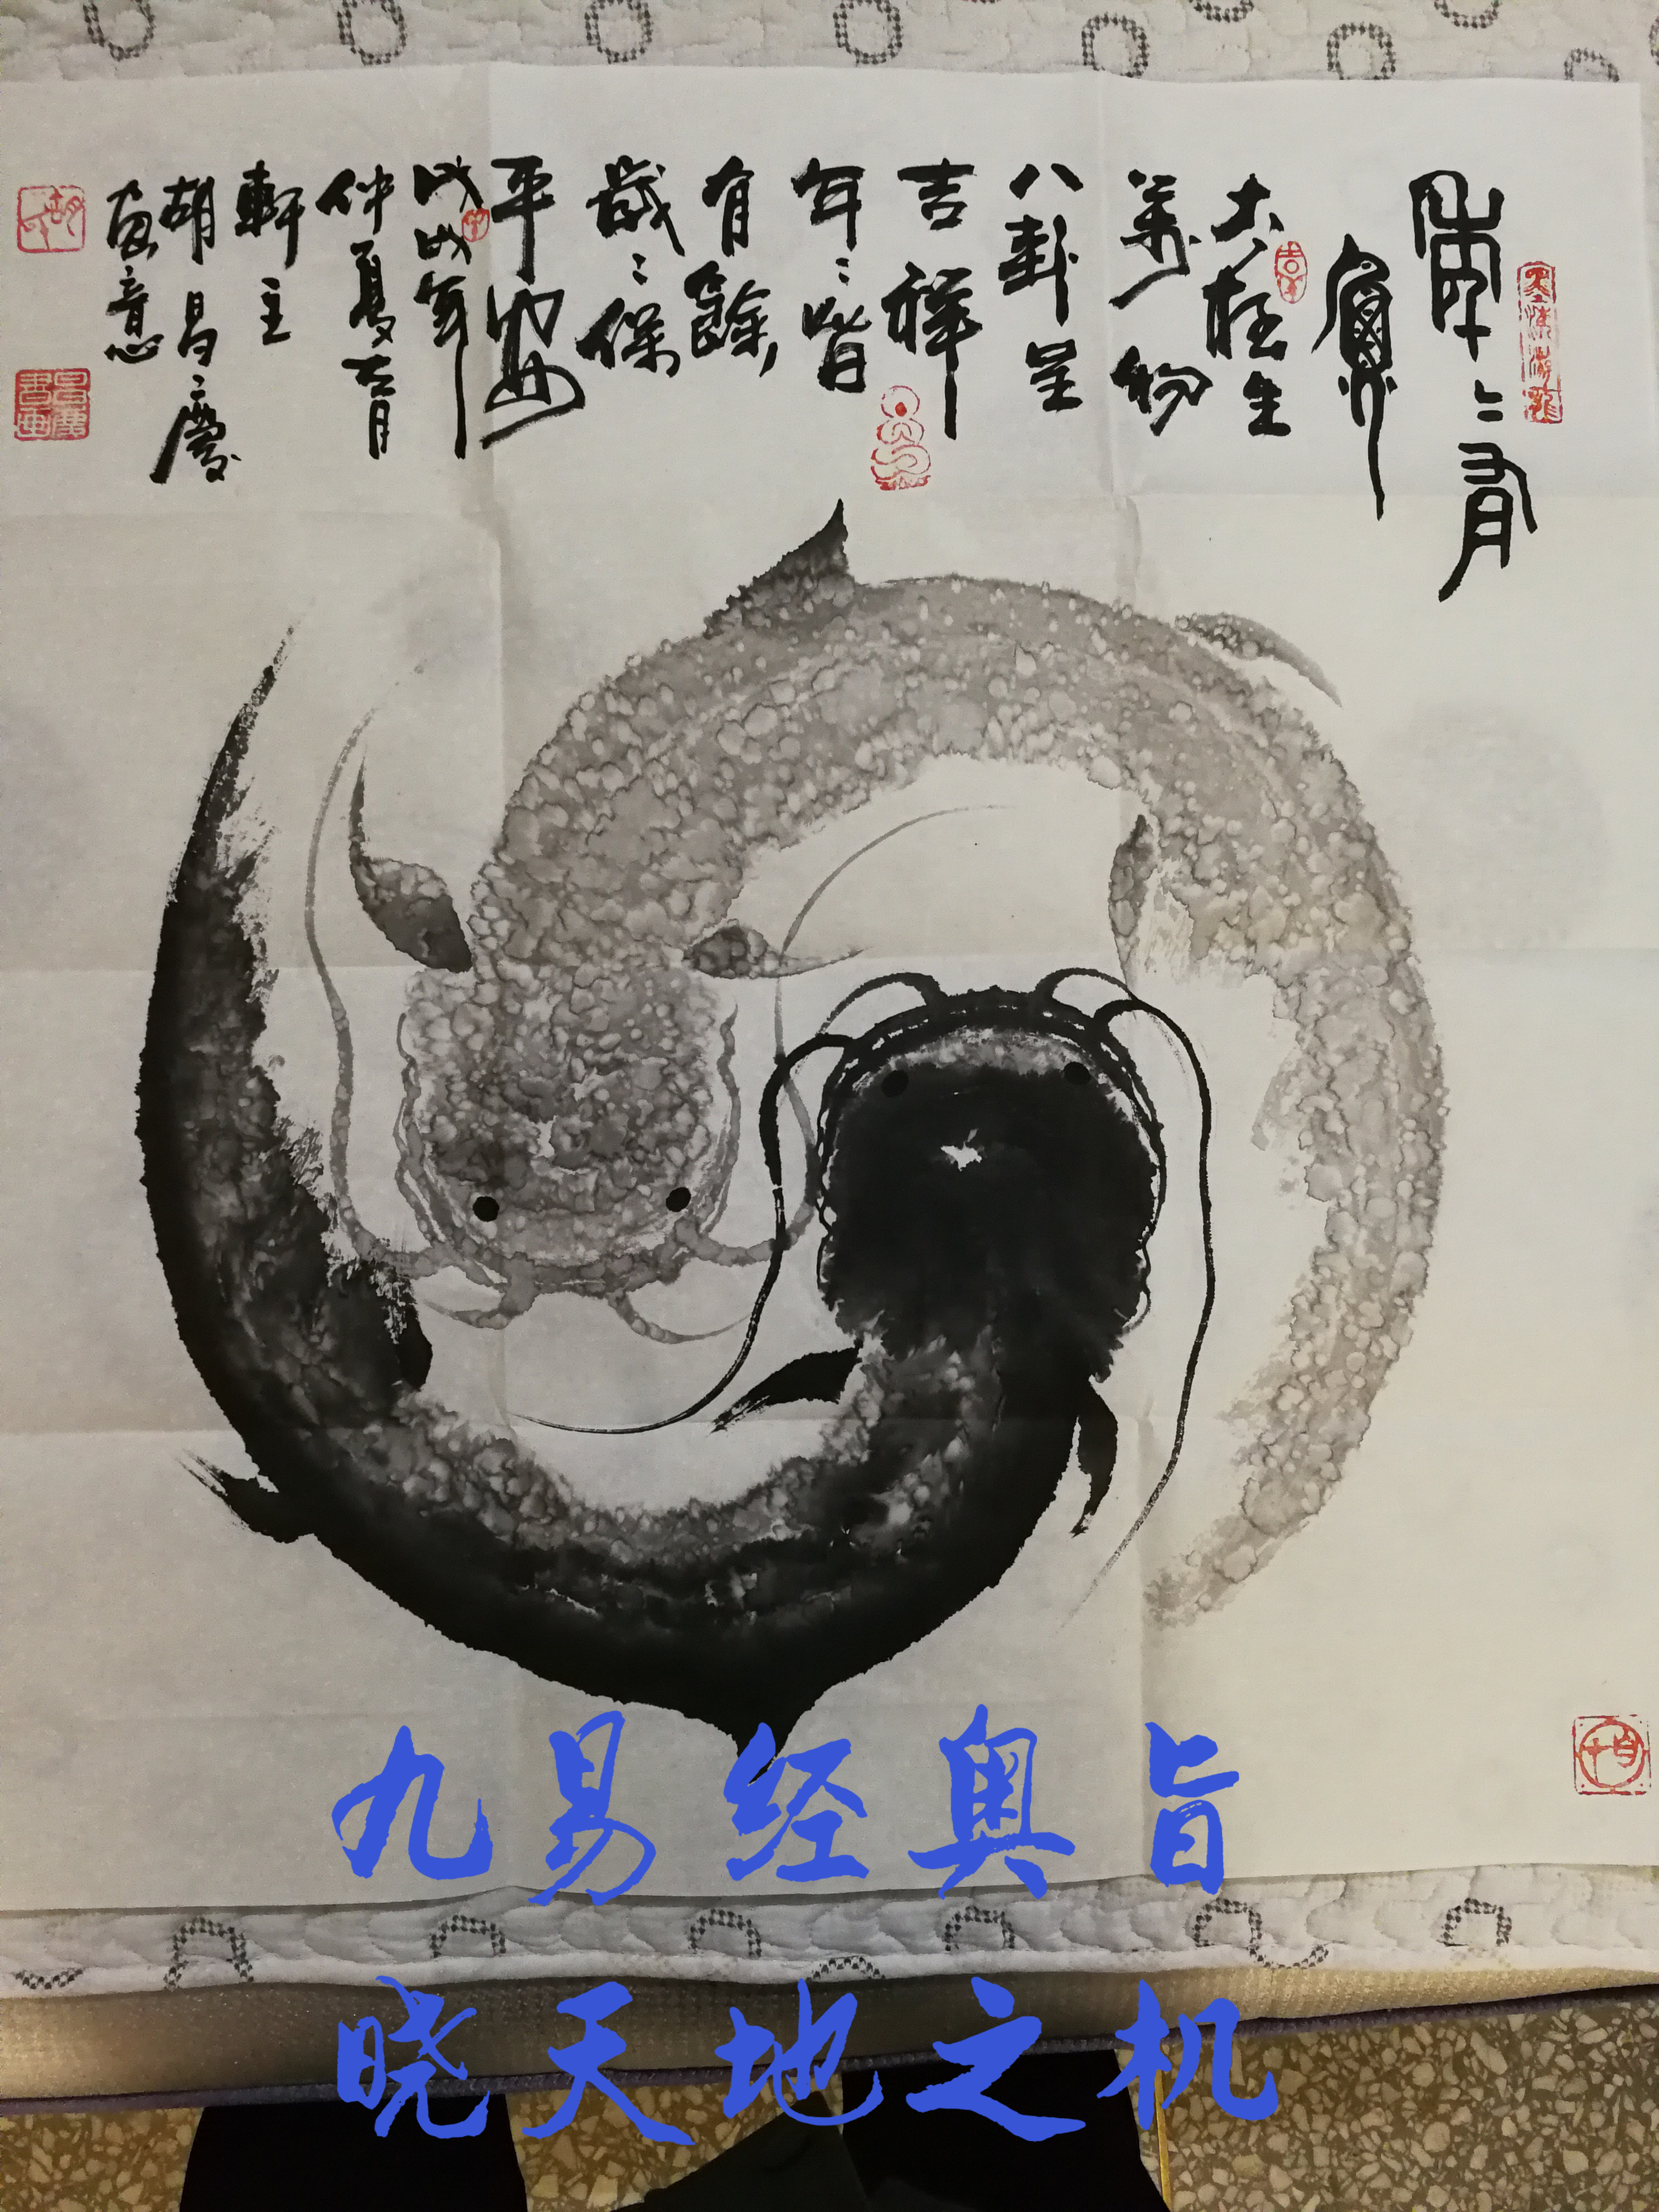 年〻有
魚
太極生
萬物
八卦呈
吉祥
年〻皆
有餘
歲〻保
平安
戊戌年
仲夏古月
軒主
胡昌慶
寫意
九易经奥旨
晓天地之机